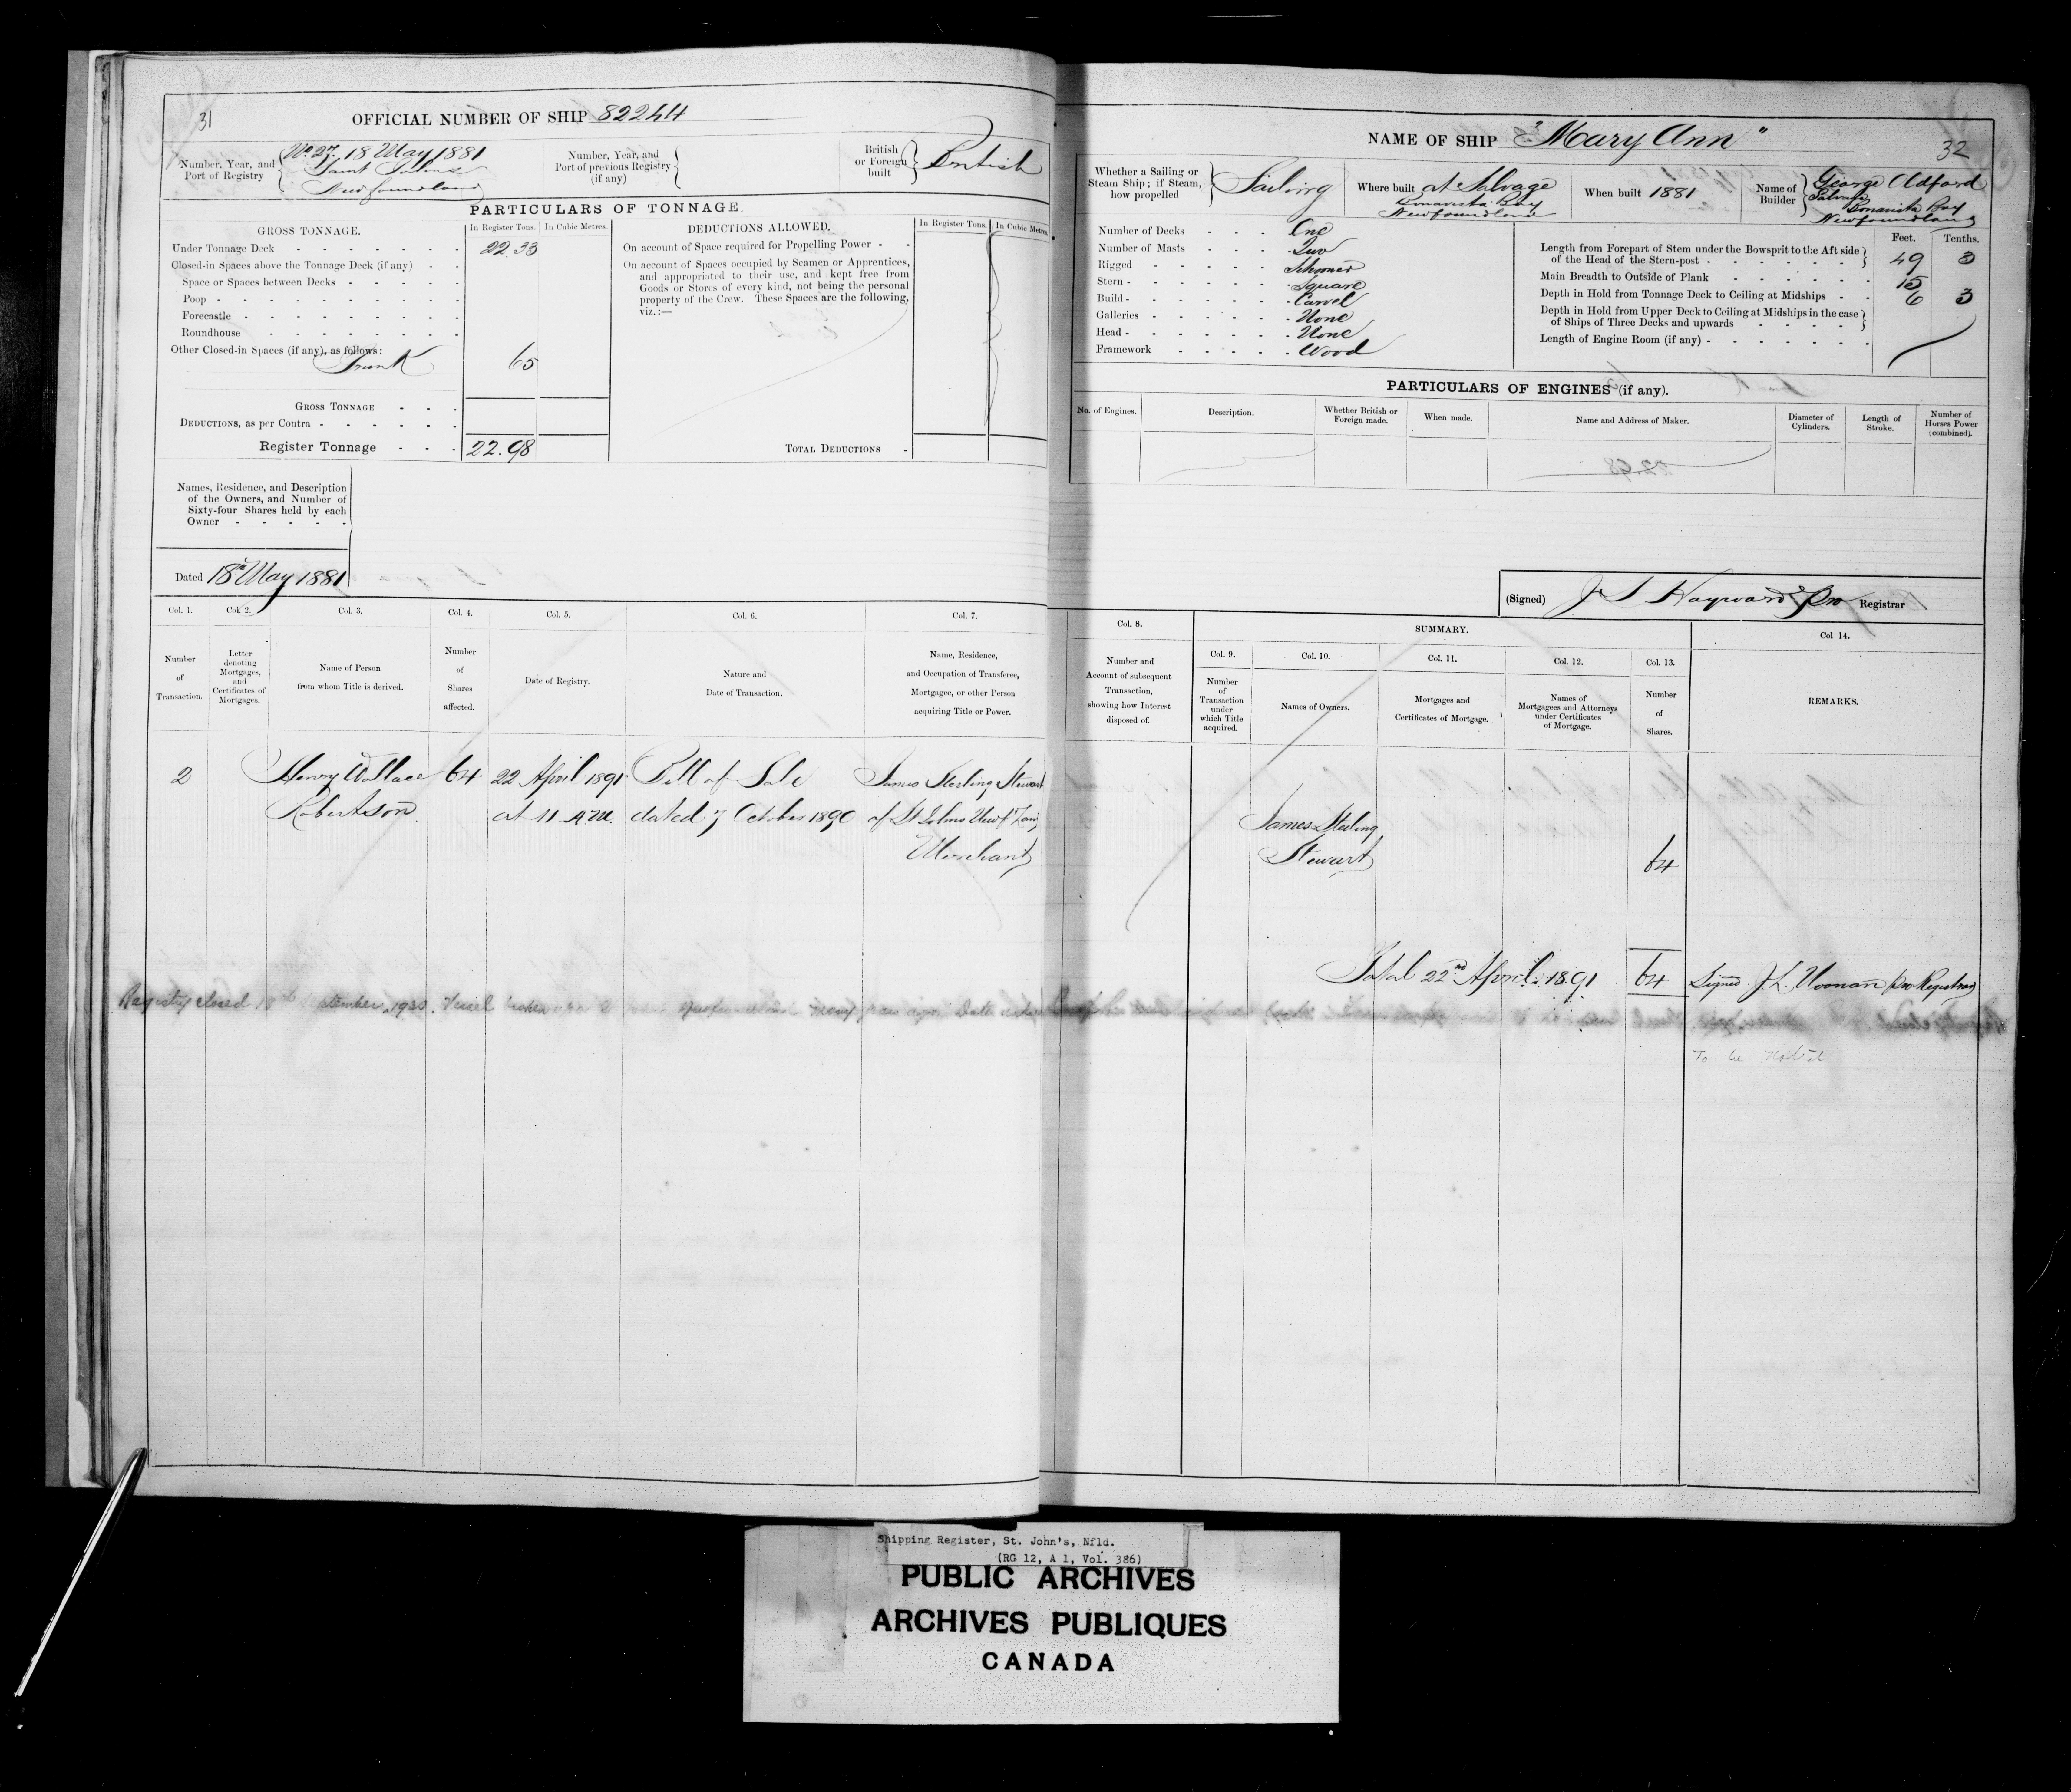 31
OFFICIAL NUMBER OF SHIP 82244
Number, Year, and Port of Registry
No 27. 18 May 1881
Saint Johns
Newfoundland
Number, Year, and Port of previous Registry (if any)
British or Foreign built
British
PARTICULARS OF TONNAGE.
GROSS TONNAGE.
In Register Tons.
In Cubic Metres.
Under Tonnage Deck 22.33
Closed-in Spaces above the Tonnage Deck (if any)
Space or Spaces between Decks
Poop
Forecastle
Roundhouse
Other Closed-in Spaces (if any), as follows:
Trunk 65
GROSS TONNAGE
DEDUCTIONS, as per Contra
Register Tonnage 22.98
DEDUCTIONS ALLOWED.
In Register Tons.
In Cubic Metres.
On account of Space required for Propelling Power
On account of Spaces occupied by Seamen or Apprentices,
and appropriated to their use, and kept free from
Goods or Stores of every kind, not being the personal
property of the Crew. These Spaces are the following,
viz.:—
TOTAL DEDUCTIONS
Names, Residence, and Description
of the Owners, and Number of
Sixty-four Shares held by each
Owner
Dated 18th May 1881
Col. 1.
Col. 2.
Col. 3.
Col. 4.
Col. 5.
Col. 6.
Col. 7.
Number of Transaction.
Letter denoting Mortgages, and Certificates of Mortgages.
Name of Person from whom Title is derived.
Number of Shares affected.
Date of Registry.
Nature and Date of Transaction.
Name, Residence, and Occupation of Transferee, Mortgagee, or other Person acquiring Title or Power.
2 Henry Wallace 64 22 April 1891 Bill of Sale James Sterling Stewart
Robertson at 11 A.M. dated 7 October 1890 of St Johns Newf
Merchant
Registry closed 18th September 1920. Vessel broken up
NAME OF SHIP "Mary Ann"
32
Whether a Sailing or Steam Ship; if Steam, how propelled
Sailing
Where built at Salvage
Bonavista Bay
Newfoundland
When built 1881
Name of Builder
George Oldford
Salvage
Bonavista Bay
Newfoundland
Number of Decks One
Number of Masts Two
Rigged Schooner
Stern Square
Build Carvel
Galleries None
Head None
Framework Wood
Feet.
Tenths.
Length from Forepart of Stem under the Bowsprit to the Aft side
of the Head of the Stern-post 49 3
Main Breadth to Outside of Plank 15
Depth in Hold from Tonnage Deck to Ceiling at Midships 6 3
Depth in Hold from Upper Deck to Ceiling at Midships in the case
of Ships of Three Decks and upwards
Length of Engine Room (if any)
PARTICULARS OF ENGINES (if any).
No. of Engines.
Description.
Whether British or Foreign made.
When made.
Name and Address of Maker.
Diameter of Cylinders.
Length of Stroke.
Number of Horses Power (combined).
(Signed) J S Hayward Pro Registrar
Col. 8.
SUMMARY.
Col 14.
Col. 9.
Col. 10.
Col. 11.
Col. 12.
Col. 13.
Number and Account of subsequent Transaction, showing how Interest disposed of.
Number of Transaction under which Title acquired.
Names of Owners.
Mortgages and Certificates of Mortgage.
Names of Mortgagees and Attorneys under Certificates of Mortgage.
Number of Shares.
REMARKS.
James Sterling
Stewart 64
Total 22nd April 1891 64 Signed J.L. Noonan pro Registrar
To be Noted
Shipping Register, St. John's, Nfld.
(RG 12, A 1, Vol. 386)
PUBLIC ARCHIVES
ARCHIVES PUBLIQUES
CANADA